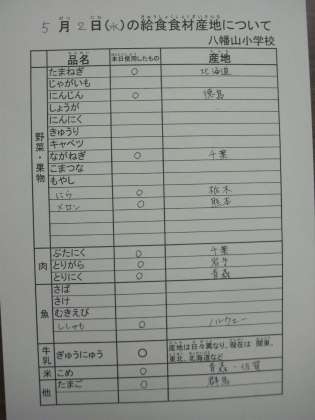 5月2日(水)の給食食材産地について
八幡山小学校
品名 本日使用したもの 産地
野菜・果物
たまねぎ ○ 北海道
じゃがいも
にんじん ○ 徳島
しょうが
にんにく
きゅうり
キャベツ
ながねぎ ○ 千葉
こまつな
もやし
にら ○ 栃木
メロン ○ 熊本
肉
ぶたにく ○ 千葉
とりがら ○ 岩手
とりにく ○ 青森
魚
さば
さけ
むきえび
ししゃも ○ ノルウェー
牛乳 ぎゅうにゅう ○ 産地は日々異なり、現在は 関東、東北、北海道など
米 こめ ○ 青森・佐賀
他 たまご ○ 群馬